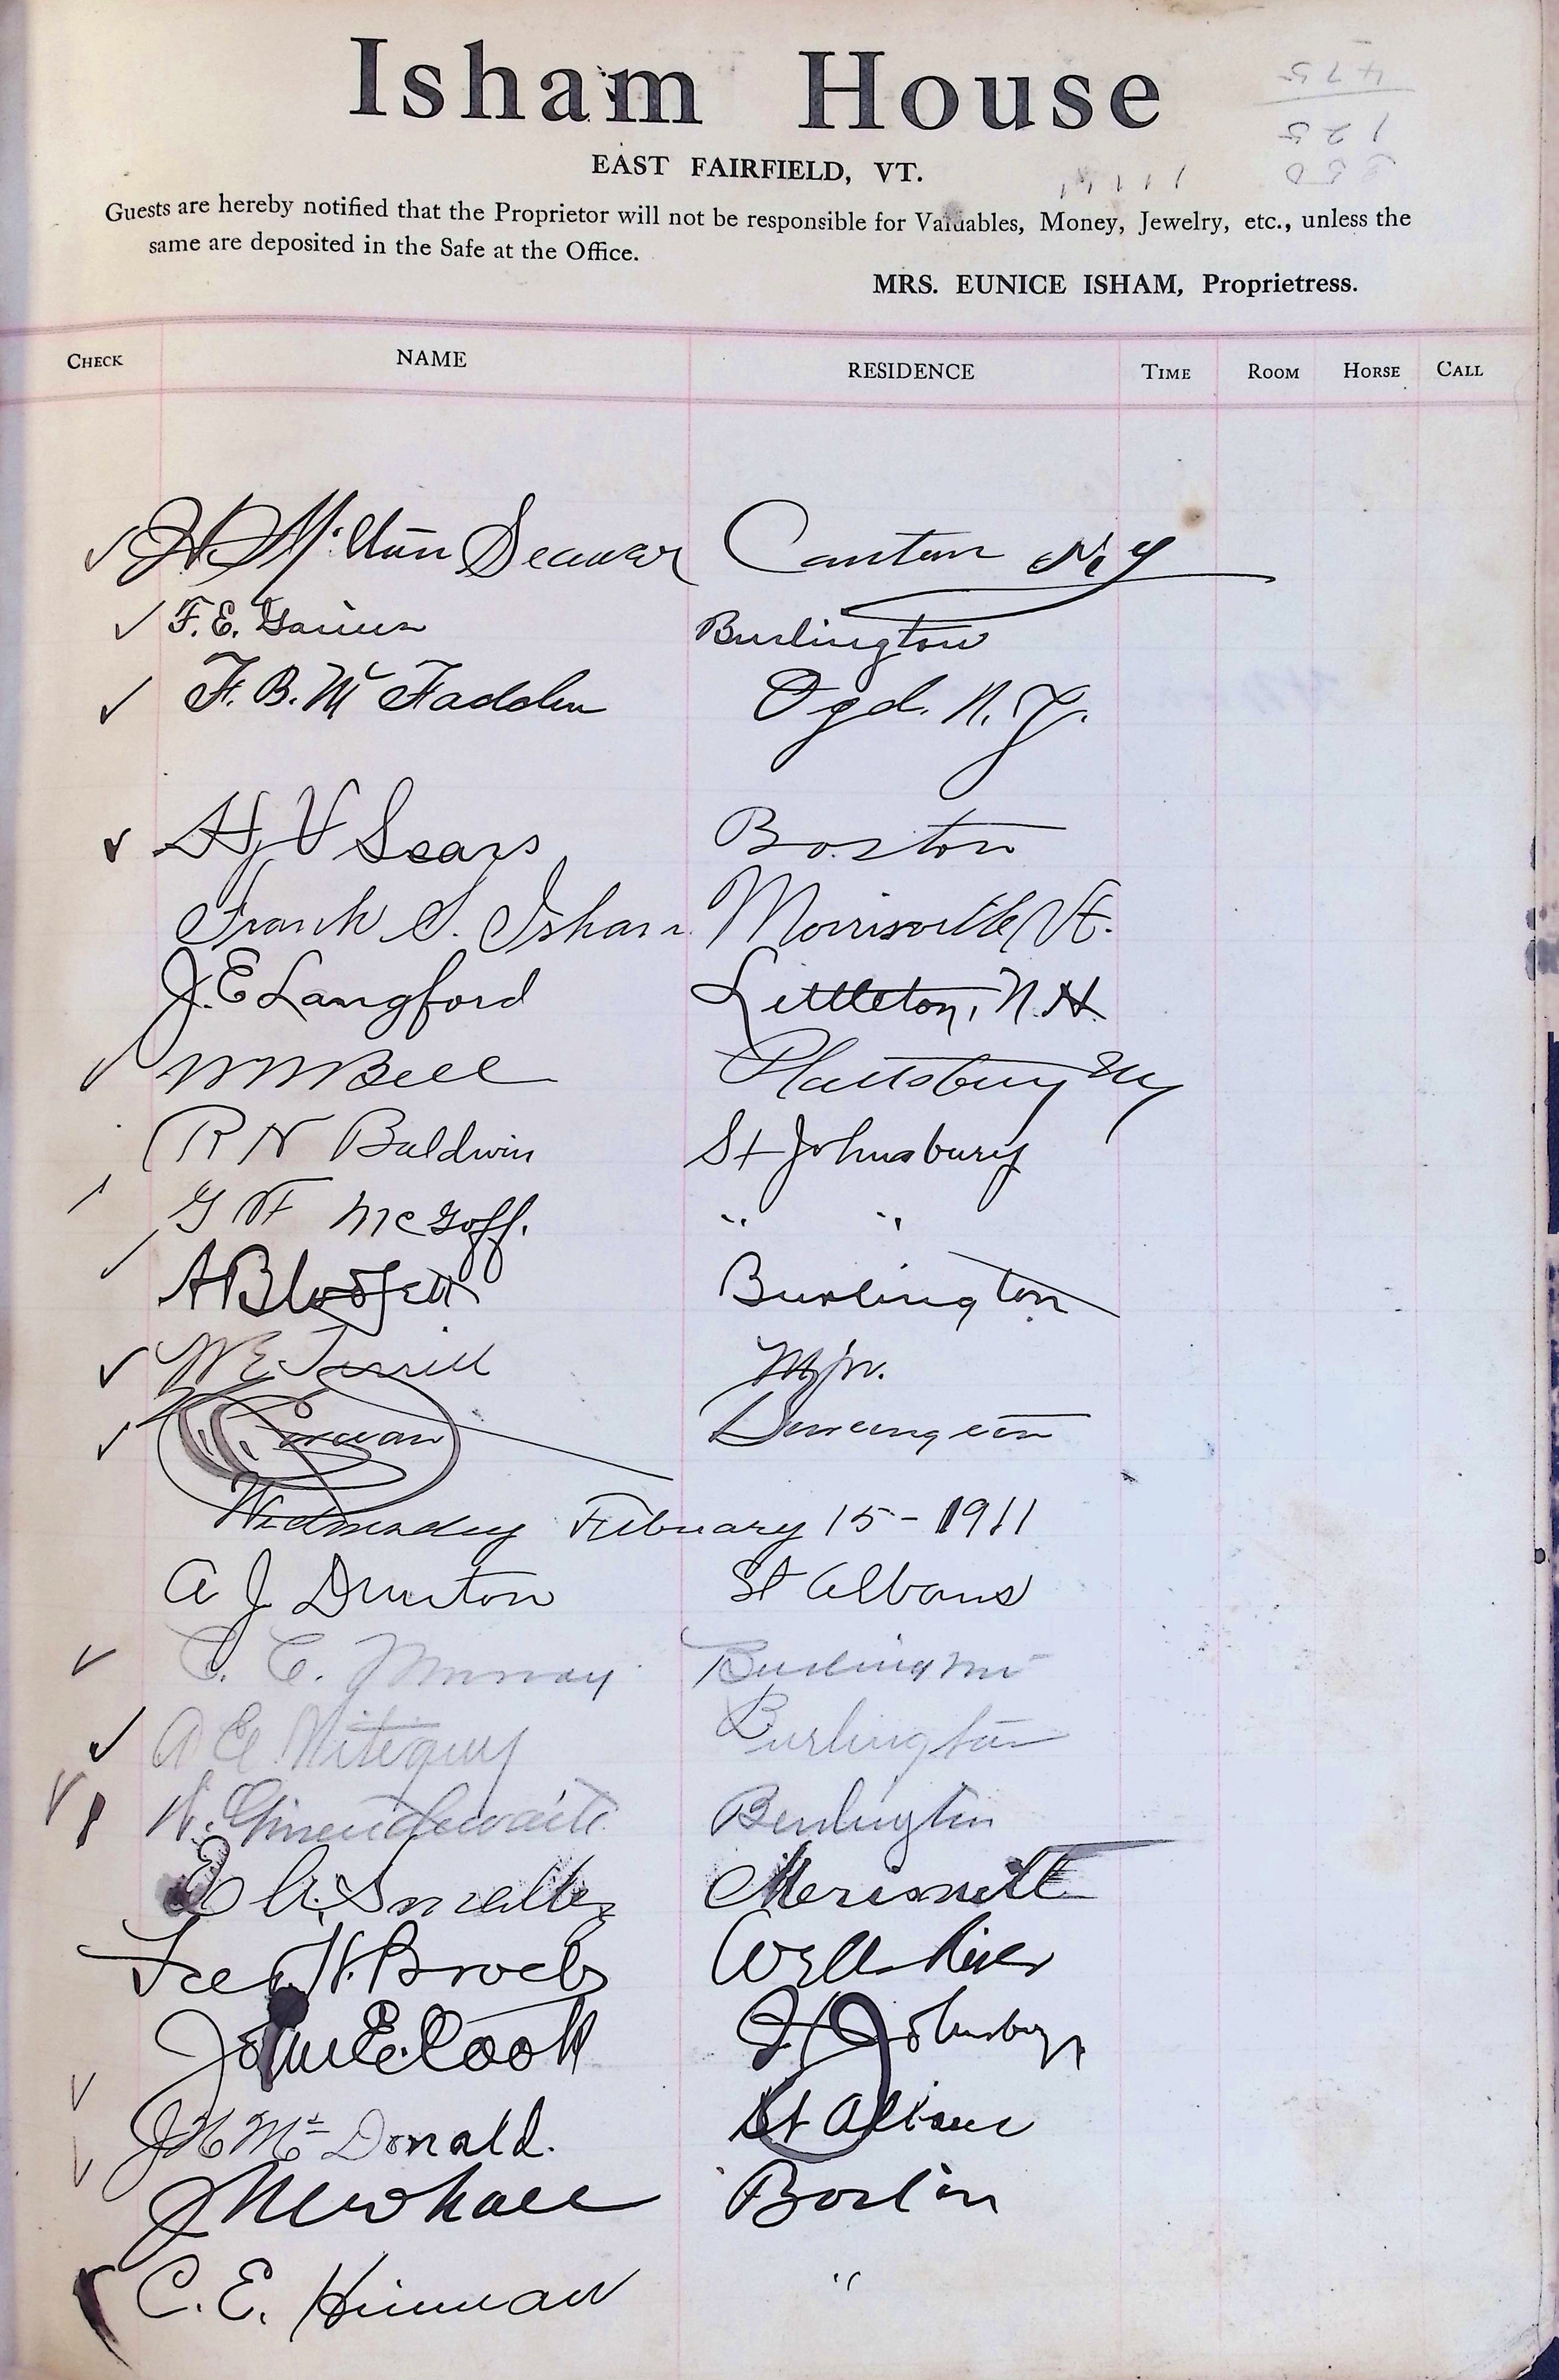 Isham House
EAST FAIRFIELD, VT.
475
125
Guests are hereby notified that the Proprietor will not be responsible for Valuables, Money, Jewelry, etc., unless the
same are deposited in the Safe at the Office.
MRS. EUNICE ISHAM, Proprietress.
CHECK NAME RESIDENCE TIME ROOM HORSE CALL
Milton Seaver Canton N.Y
F. E. Burlington
F. B. Mc Fadden Ogd. N. Y.
H V Sears Boston
Frank S. Isham Morrisville Vt.
J. E Langford Littleton, N. H.
Bell Plattsburg NY
R N Baldwin St Johnsbury
McGoff. " "
A Blodgett Burlington
W E Terrill
Wednesday February 15 - 1911
A J Dunton St Albans
C. C. Murray Burlington
A E Burlington
Burlington
Smalley
H. Brock Wells River
John E. Cook St Johnsbury
J H Mc Donald. St Albans
J Newhall Boston
C. E. Hinman "